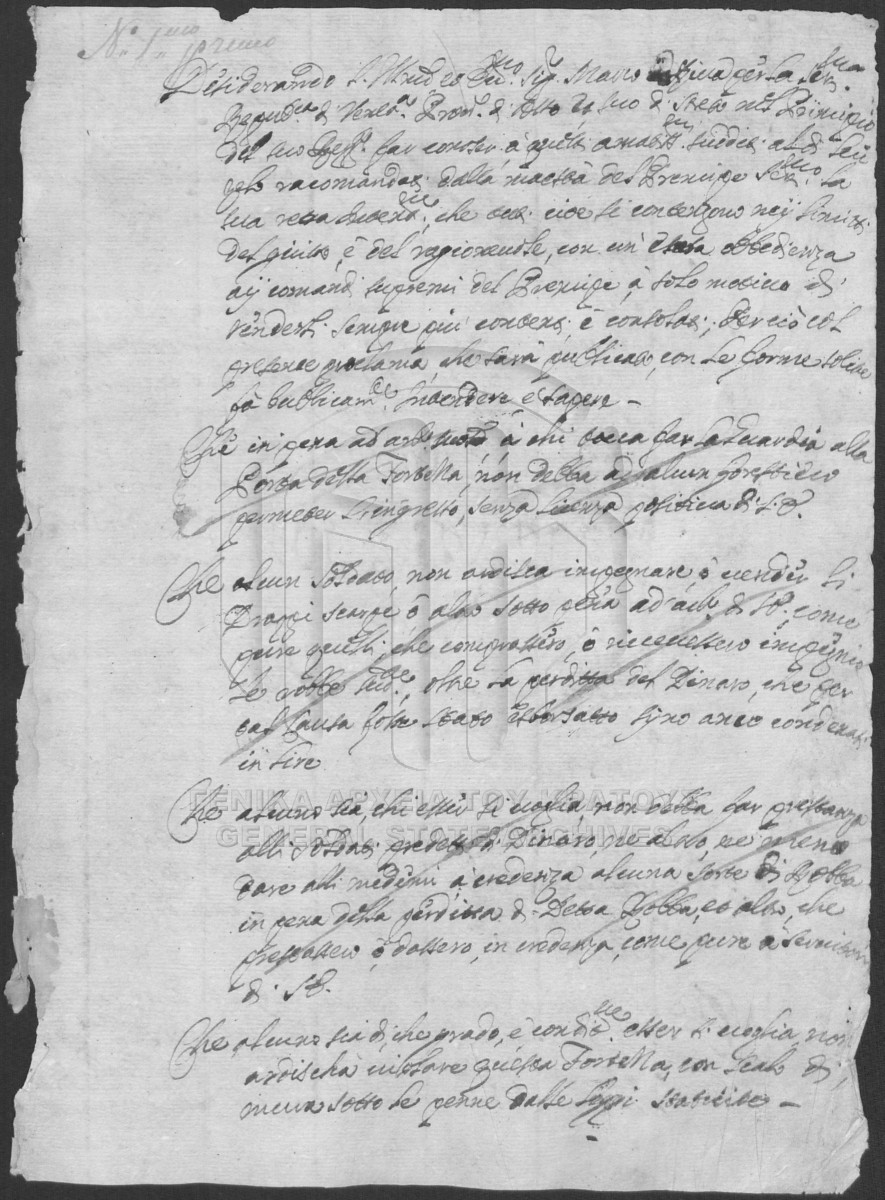 N.o 1.mo primo
Desiderando l'Ill. ed Ecc.mo Sig. Marco per la Ser.ma
Repub.ca di Ven.a Prov. di suo di nel Principio
del suo Regg.o far conoscer à questi amatis.mi sudditi al di lui
zelo racomandati dalla maestà del Prencipe Ser.mo la
sua retta che tutti si contengono nelj limitti
del giusto, è del ragionevole, con un' esata obbedienza
aij comandi supremi del Prencipe à solo motivo di
renderli sempre più contenti è consolati; Perciò col
presente proclama, che sarà publicato, con le forme solite
fà publicam.te intendere è sapere –
Che in pena ad arb. à chi tocca far la Guardia alla
Porta della Fortezza, non debba ad alcun forestiero
permeter l'ingresso, senza licenza positiva di S. E.
Che alcun soldato, non ardisca impegnare, ò vender li
Drappi scarpe ò altro sotto pena ad arb. di S. E. come
pure quelli, che comprassero, ò ricevessero impegnio
le robbe sud.te, oltre la perditta del Dinaro, che per
tal causa fosse stato esborsatto sijno anco condenati
in lire
ΓΕΝΙΚΑ ΑΡΧΕΙΑ ΤΟΥ ΚΡΑΤΟΥΣ
GENERAL STATE ARCHIVES
Che alcuno sia, chi esser si voglia, non debba far prestanza
alli soldati predetti di Dinaro, ne altro, ne meno
dare alli medemi à credenza alcuna sorte di Robba
in pena della perditta di Detta Robba, et altro, che
prestassero, ò dassero, in credenza, come pure à
di S. E.
Che alcuno sia di, che grado, è condit.ne esser si voglia, non
ardischa violare questa Fortezza, con scalo di,
mura sotto le penne dalle leggi statuite –